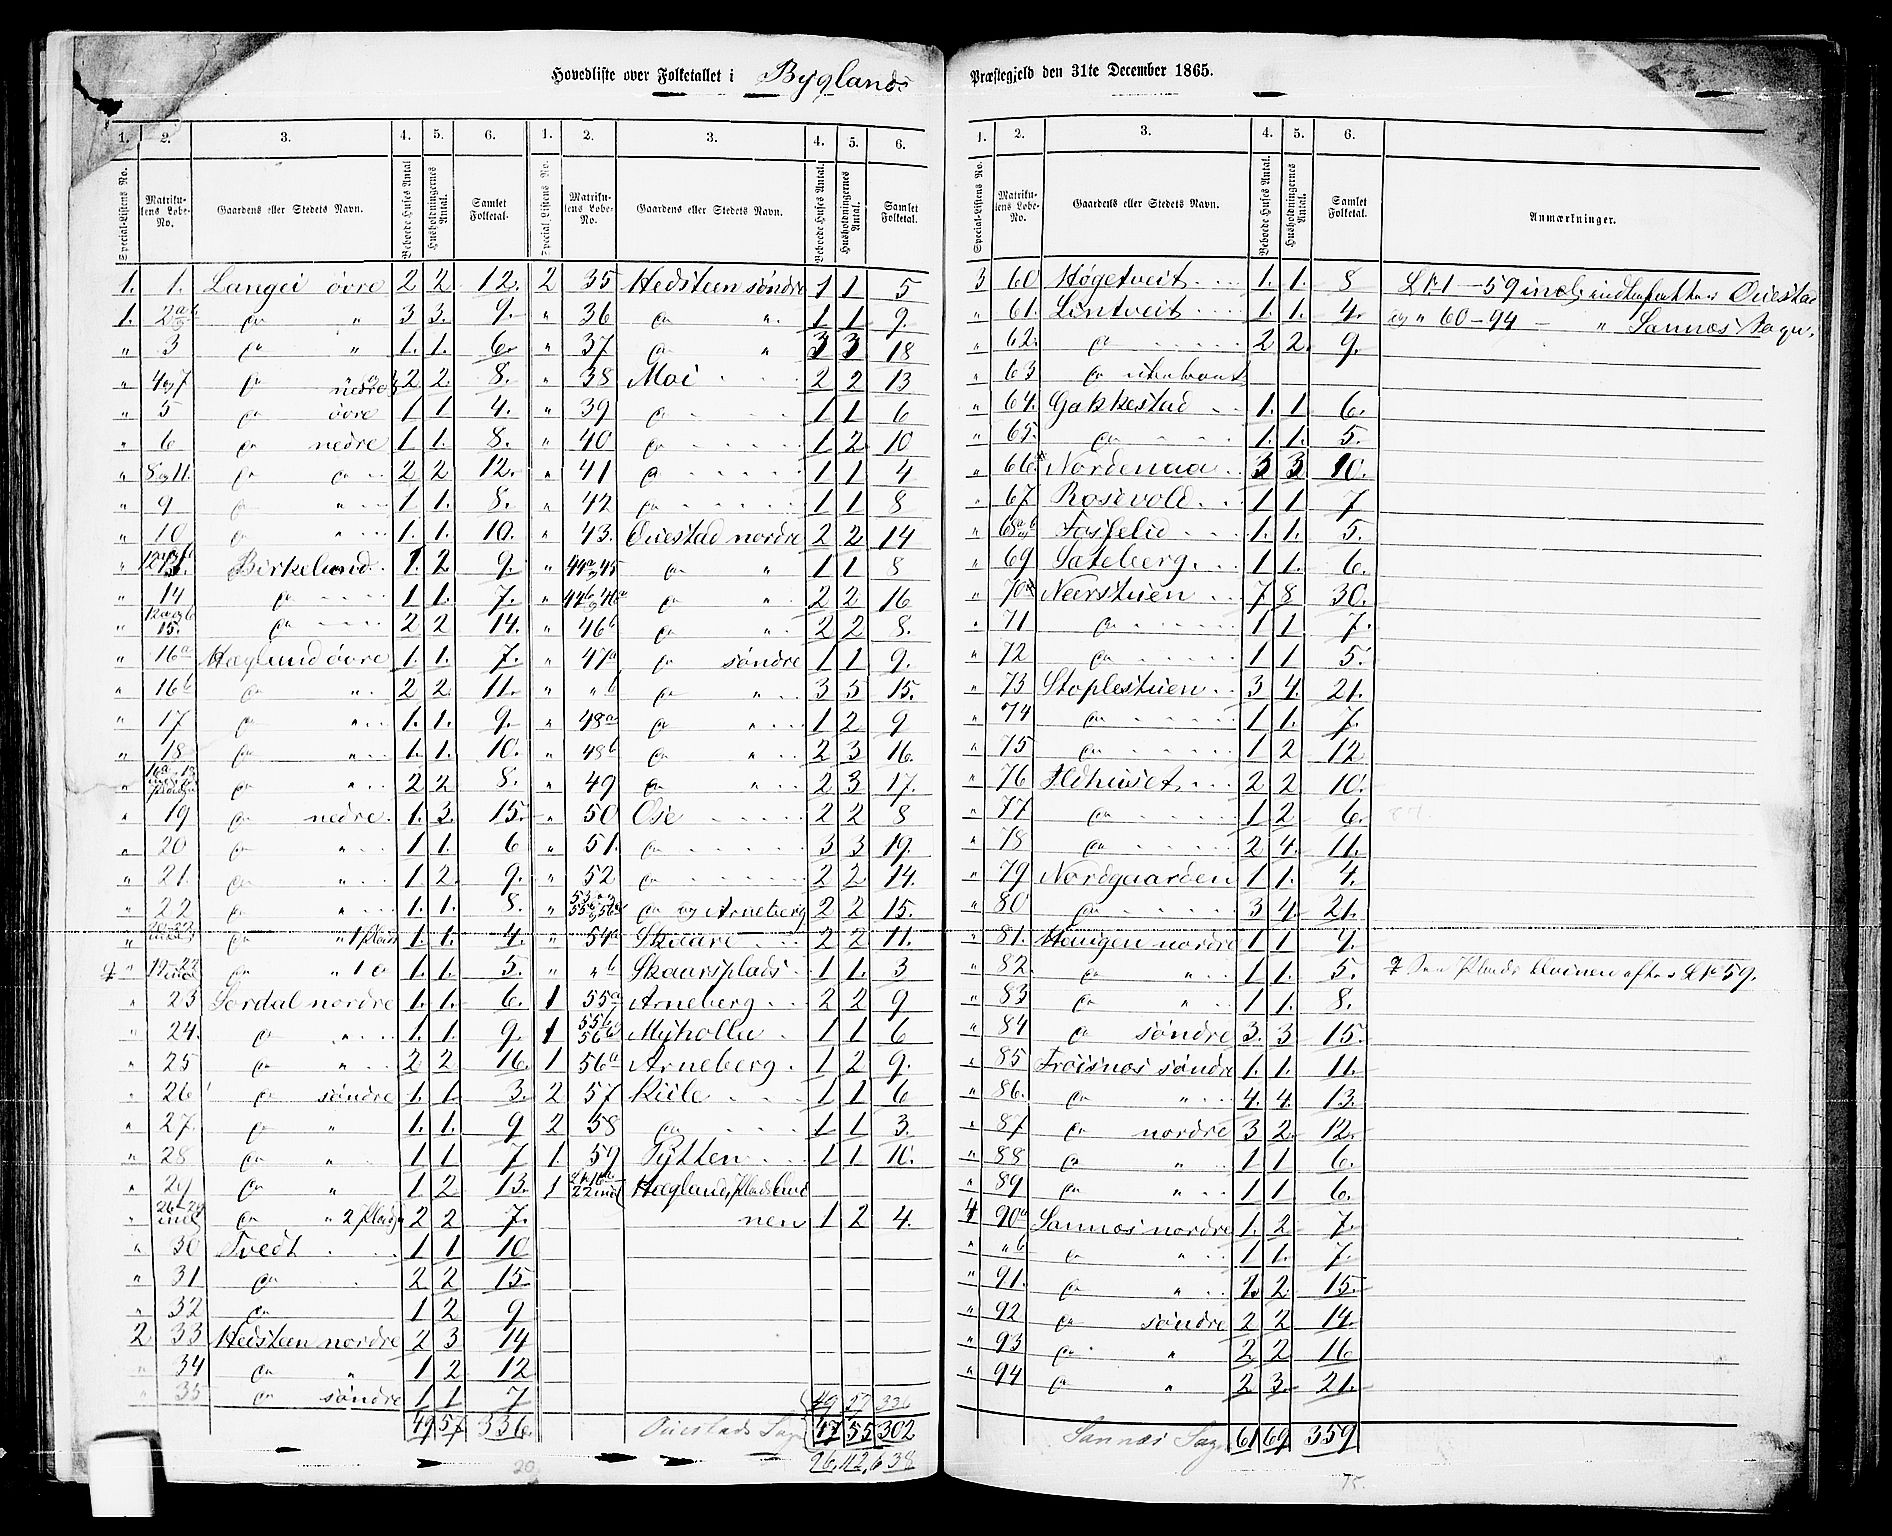 Hovedliste over Folketallet i Byglands Præstegjeld den 31te December 1865.
1. 2. 3. 4. 5. 6. 1. 2. 3. 4. 5. 6.
Special-Listens No. Matrikulens Løbe-No. Gaardens eller Stedets Navn. Beboede Huses Antal Husholdningernes Antal. Samlet Folketal. Special-Listens No. Matrikulens Løbe-No. Gaardens eller Stedets Navn. Beboede Huses Antal. Husholdningernes Antal. Samlet Folketal.
1. 1. Langei övre 2 2 12. 2 35 Hedsteen söndre 1 1 5
1. 2 a b do " 3 3. 9. " 36 do ". 1 1 9.
" 3 do " 1. 1. 6. " 37 do " 3 3 18
" 4og7 do nedre 2 2. 8. " 38 Moi 2 2 13
" 5 do övre 1 1 4. " 39 do 1 1 6
" 6 do nedre 1 1. 8. " 40 do 1 2 10
" 8og11. do do 2 2 12. " 41 do 1 1 4
" 9 do " 1 1. 8. " 42 do 1 1 8
" 10 do " 1. 1. 10. " 43. Ouestad nordre 2 2 14
" Birkeland. 1. 2 9. " 44a og 45 do " 1 1 8
" 14 do 1 1. 7. " 44b og 46a do " 2 2 16
" 12a og b 15. do 2 2 14. " 46b do ". 2 2 8.
" 16a Hæglund övre 1. 1. 7. " 47a do söndre 1 1 9.
" 16b do ". 2 2. 11. " " b do ". 3 5 15.
" 17 do " 1. 1. 9. " 48a do " 1 2 9
" 18 do " 1. 1. 10. " 48b do " 2 3 16.
" do " 2 2 8. " 49 do " 2 3 17.
" 19 do nedre. 1. 3. 15. " 50 Ose 2 2 8
" 20 do " 1 1. 6 " 51. do 3 3 19.
" 21. do " 1. 2. 9. " 52 do 2 2 14.
" 22 do " 1. 1. 8. " do og Arneberg 2 2 15.
" do " 1 Plads 1. 1. 4. " 54a Skaare 2 2 11.
" 19-22 incl do " 1 do 1. 1. 5. " " b Skaarsplads 1 1. 3
" 23 Jordal nordre 1. 1. 6. 1 55a Arneberg 2 2 9
" 24. do " 1. 1. 9. 1 55b 56b Myhollu 1 1 6
" 25 do " 2 2 16. 1 56a Arneberg. 1 2 9.
" 26 do söndre 1. 1. 3. 2 57 Riile 1 1 6
" 27. do " 1. 1. 9 2 58 do 1 1 3.
" 28 do " 1 1 7 1. 59 Pytten 1 1 10.
" 29 do " 1 2 13. 1 22 incl Hæglunds Plads Eivi
" 26-29 incl do " 2 Pladse 2 2 7. nen 1 2 4.
" 30 Tvedt 1 1 10
" 31 do 2 2 15
" 32 do 1 2 9
2 33 Hedsteen nordre 2 3 14
" 34 do " 1 2 12
" 35 do söndre 1 1 7 49 57 336
49 57 336. Ouestads Sogn 47 55 302
96. 112. 638
20
1. 2. 3. 4. 5. 6.
Special-Listens No. Matrikulens Løbe-No. Gaardens eller Stedets Navn. Beboede Huses Antal. Husholdningernes Antal. Samlet Folketal. Anmærkninger.
3 60 Högetveit 1. 1. 8 L No 1 - 59 incl. indbefatter Ouestad
" 61. Lintveit 1. 1. 4. og " 60-94 - " Sannæs Sogn.
" 62. do 2 2. 9.
" 63 do ubeboet
" 64. Gakkestad 1. 1 6.
" 65. do 1. 1. 5.
" 66 Nordenaa 3 3 10.
" 67 Rosevold 1 1 7
" 68 a b Fosselid 1. 1. 5.
" 69 Sateberg. 1 1. 6.
" 70 Neerstuen 7 8 30.
" 71 do 1 1. 7.
" 72 do 1 1 5.
" 73 Stoplestuen 3 4. 21.
" 74 do 1 1. 7.
" 75 do 1 2 12
" 76 Ildhuset 2 2 10.
" 77 do 1 2 6.
" 78 do 2 4. 11.
" 79 Nordgaarden 1 1. 4.
" 80 do 3 4. 21.
" 81. Heuigen nordre 1 1 4.
" 82. do " 1 1. 5. Plads Eivinen efter L No 59.
" 83 do " 1 1. 8.
" 84 do söndre 3. 3 15.
" 85 Fröisnæs söndre 1. 1. 11.
" 86. do " 4. 4. 13.
" 87 do nordre 3 2. 12.
" 88 do " 1 1 6.
" 89 do " 1 1 6.
4 90a Sannæs nordre 1. 2. 7.
" " b do " 1 1. 7.
" 91. do " 1. 2. 15.
" 92 do söndre 2 2 14.
" 93 do " 2 2 16
" 94 do " 2 3. 21.
Sannæs Sogn 61 69 359
75.